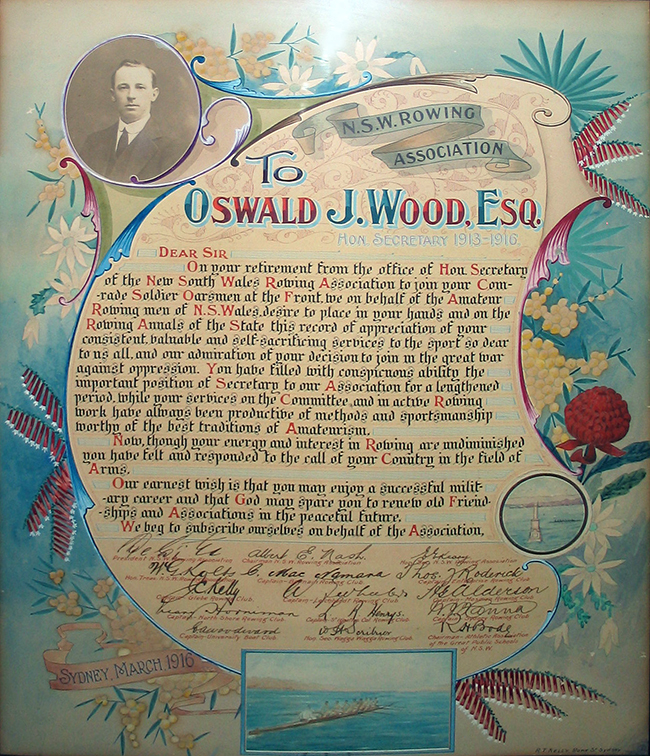 N.S.W. ROWING
ASSOCIATION
TO
OSWALD J. WOOD, ESQ.
HON. SECRETARY 1913-1916.
DEAR SIR
On your retirement from the office of Hon. Secretary
of the New South Wales Rowing Association to join your Com-
-rade Soldier Oarsmen at the Front, we on behalf of the Amateur
Rowing men of N.S.Wales, desire to place in your hands and on the
Rowing Annals of the State this record of appreciation of your
consistent, valuable and self-sacrificing services to the sport so dear
to us all, and our admiration of your decision to join in the great war
against oppression. You have filled with conspicuous ability the
important position of Secretary to our Association for a lengthened
period, while your services on the Committee, and in active Rowing
work have always been productive of methods and sportsmanship
worthy of the best traditions of Amateurism.
Now, though your energy and interest in Rowing are undiminished
you have felt and responded to the call of your Country in the field of
Arms.
Our earnest wish is that you may enjoy a successful milit-
-ary career and that God may spare you to renew old Friend-
-ships and Associations in the peaceful future.
We beg to subscribe ourselves on behalf of the Association,
Albert E. Nash
President N.S.W. Rowing Association Chairman N.S.W. Rowing Association N.S.W. Rowing Association
Mac Namara Thos. J. Roderick
Hon. Treas. N.S.W. Rowing Rowing Club Rowing Club
Kelly H. G. Alderson
Captain Glebe Rowing Club Captain Leichhardt Rowing Club Captain Mosman Rowing Club
Horniman Henrys Hanna
Captain North Shore Rowing Club Rowing Club Captain Sydney Rowing Club
Eawoodward W. H. Scribner R H Bode
Captain University Boat Club Hon. Sec. Wagga Wagga Rowing Club Chairman Athletic Association
of the Great Public Schools
of N.S.W.
SYDNEY, MARCH 1916